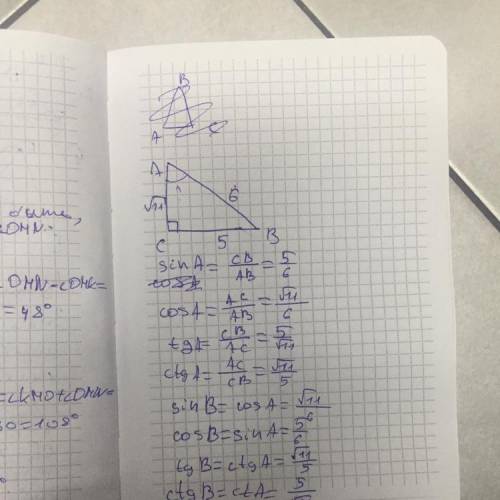 B
A
A
√11
6
C
5
B
sinA = CB/AB = 5/6
cosA
cosA = AC/AB = √11/6
tgA = CB/AC = 5/√11
ctgA = AC/CB = √11/5
sinB = cosA = √11/6
cosB = sinA = 5/6
tgB = ctgA = √11/5
ctgB = ctA = 5
= 48°
= 108°